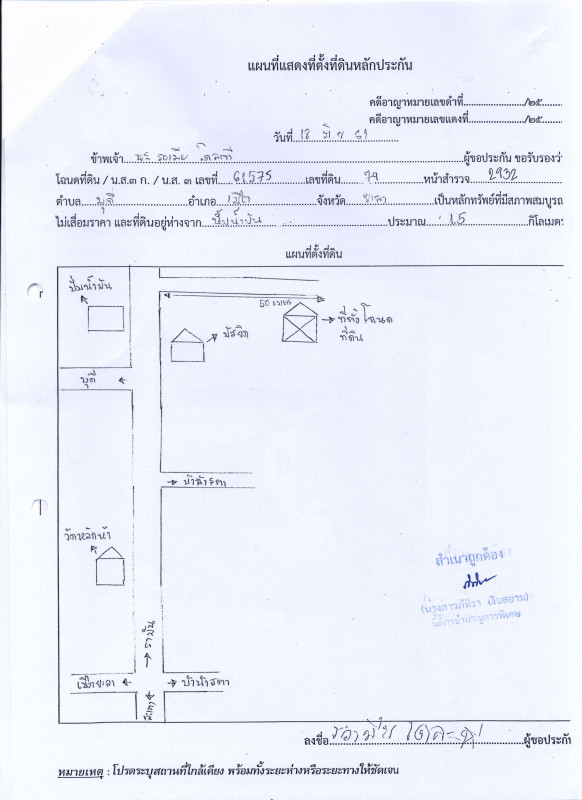 แผนที่แสดงที่ตั้งที่ดินหลักประกัน
คดีอาญาหมายเลขดำที่............/๒๕........
คดีอาญาหมายเลขแดงที่............/๒๕........
วันที่ 18 มิ.ย 61
ข้าพเจ้า ผู้ขอประกัน ขอรับรองว่า
โฉนดที่ดิน / น.ส.๓ ก. / น.ส. ๓ เลขที่ 61575 เลขที่ดิน 79 หน้าสำรวจ 2932
ตำบล บุดี อำเภอ เมือง จังหวัด ยะลา เป็นหลักทรัพย์ที่มีสภาพสมบูรณ์
ไม่เสื่อมราคา และที่ดินอยู่ห่างจาก ปั๊มน้ำมัน ประมาณ 1.5 กิโลเมตร
แผนที่ตั้งที่ดิน
ปั๊มน้ำมัน
50 เมตร
ที่ตั้งโฉนด
ที่ดิน
มัสยิด
บุดี
วัดหลักห้า
รามัน
เมืองยะลา
บันนังสตา
สำเนาถูกต้อง
นิติกรชำนาญการพิเศษ
ลงชื่อ ผู้ขอประกัน
หมายเหตุ : โปรดระบุสถานที่ใกล้เคียง พร้อมทั้งระยะห่างหรือระยะทางให้ชัดเจน